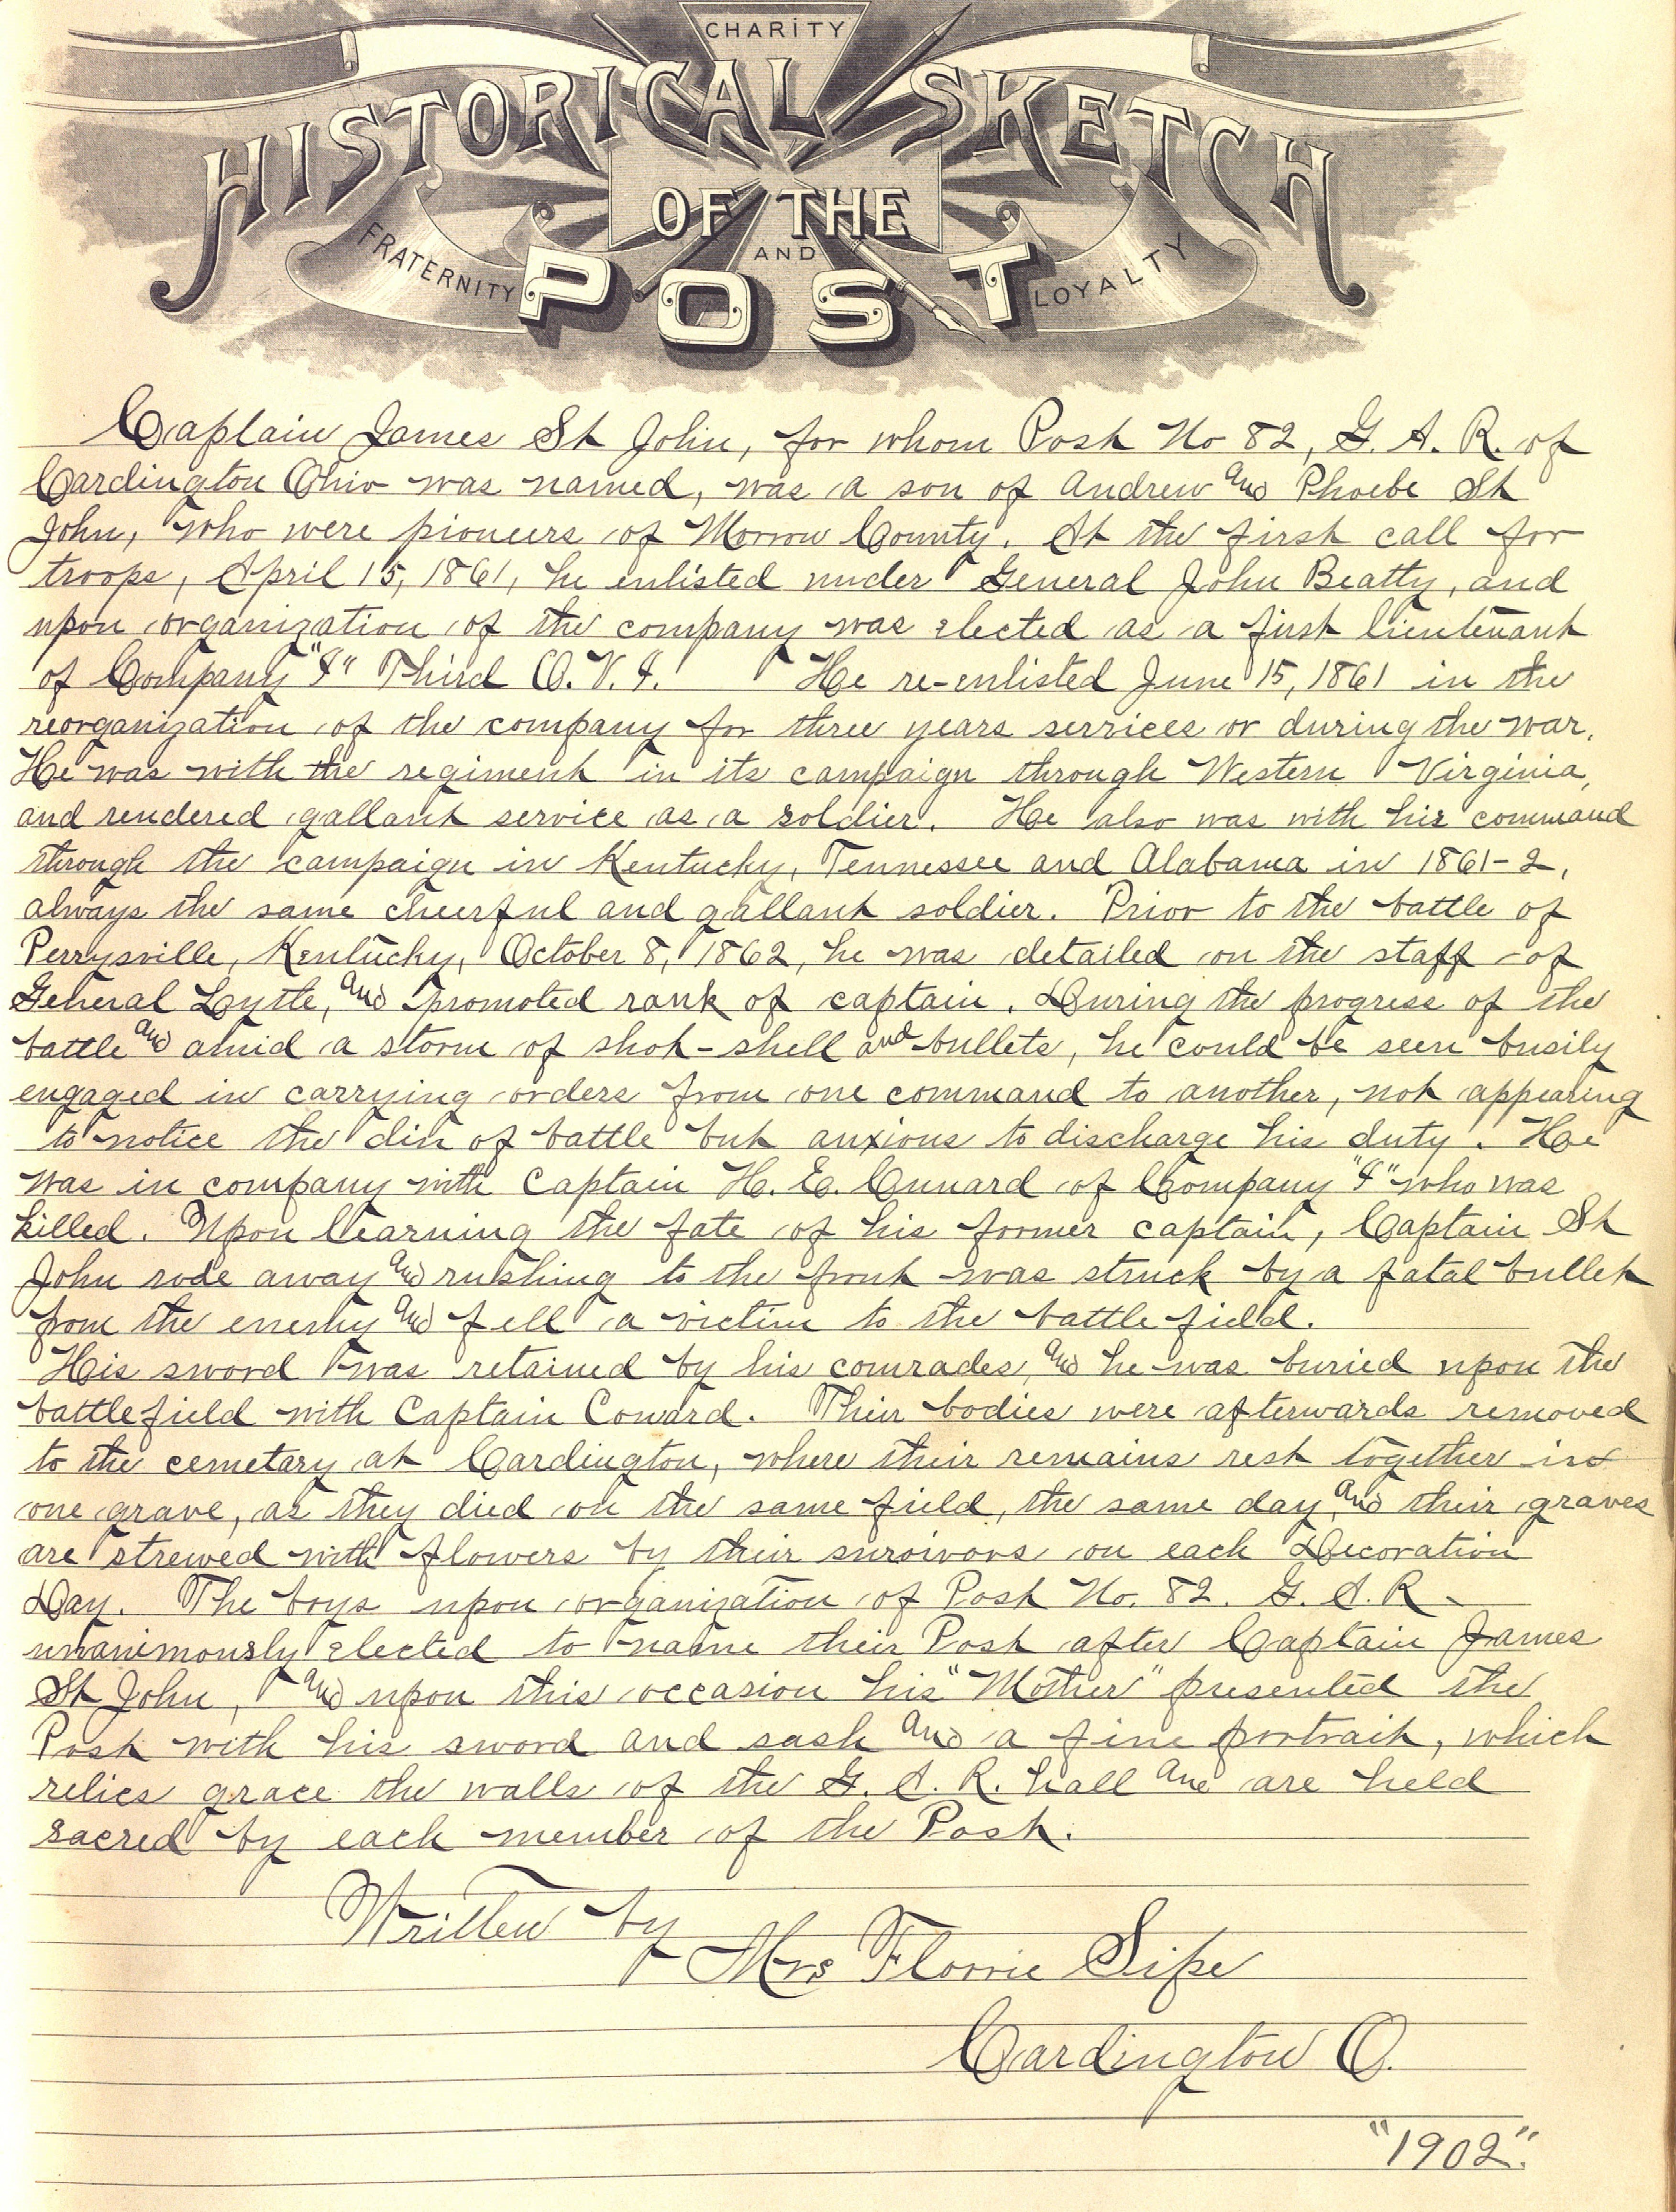 CHARITY
HISTORICAL SKETCH
OF THE
FRATERNITY AND LOYALTY
POST
Captain James St John, for whom Post No 82, G. A. R. of
Cardington Ohio was named, was a son of Andrew and Phoebe St
John, who were pioneers of Morrow County. At the first call for
troops, April 15, 1861, he enlisted under General John Beatty, and
upon organization of the company was elected as a first lieutenant
of Company "I" Third O. V. I. He re-enlisted June 15, 1861 in the
reorganization of the company for three years services or during the war.
He was with the regiment in its campaign through Western Virginia,
and rendered gallant service as a soldier. He also was with his command
through the campaign in Kentucky, Tennessee and Alabama in 1861-2,
always the same cheerful and gallant soldier. Prior to the battle of
Perrysville, Kentucky, October 8, 1862, he was detailed on the staff of
General Lytle, and promoted rank of captain. During the progress of the
battle and amid a storm of shot-shell and bullets, he could be seen busily
engaged in carrying orders from one command to another, not appearing
to notice the din of battle but anxious to discharge his duty. He
was in company with Captain H. E. Cunard of Company "I" who was
killed. Upon learning the fate of his former captain, Captain St
John rode away and rushing to the front was struck by a fatal bullet
from the enemy and fell a victim to the battle field.
His sword was retained by his comrades, and he was buried upon the
battlefield with Captain Conard. Their bodies were afterwards removed
to the cemetary at Cardington, where their remains rest together in
one grave, as they died on the same field, the same day, and their graves
are strewed with flowers by their survivors on each Decoration
Day. The boys upon organization of Post No. 82. G. A. R.
unanimously elected to name their Post after Captain James
St John, and upon this occasion his "Mother" presented the
Post with his sword and sash and a fine portrait, which
relics grace the walls of the G. A. R. hall and are held
sacred by each member of the Post.
Written by
Mrs Florrie Sipe
Cardington O.
"1902".